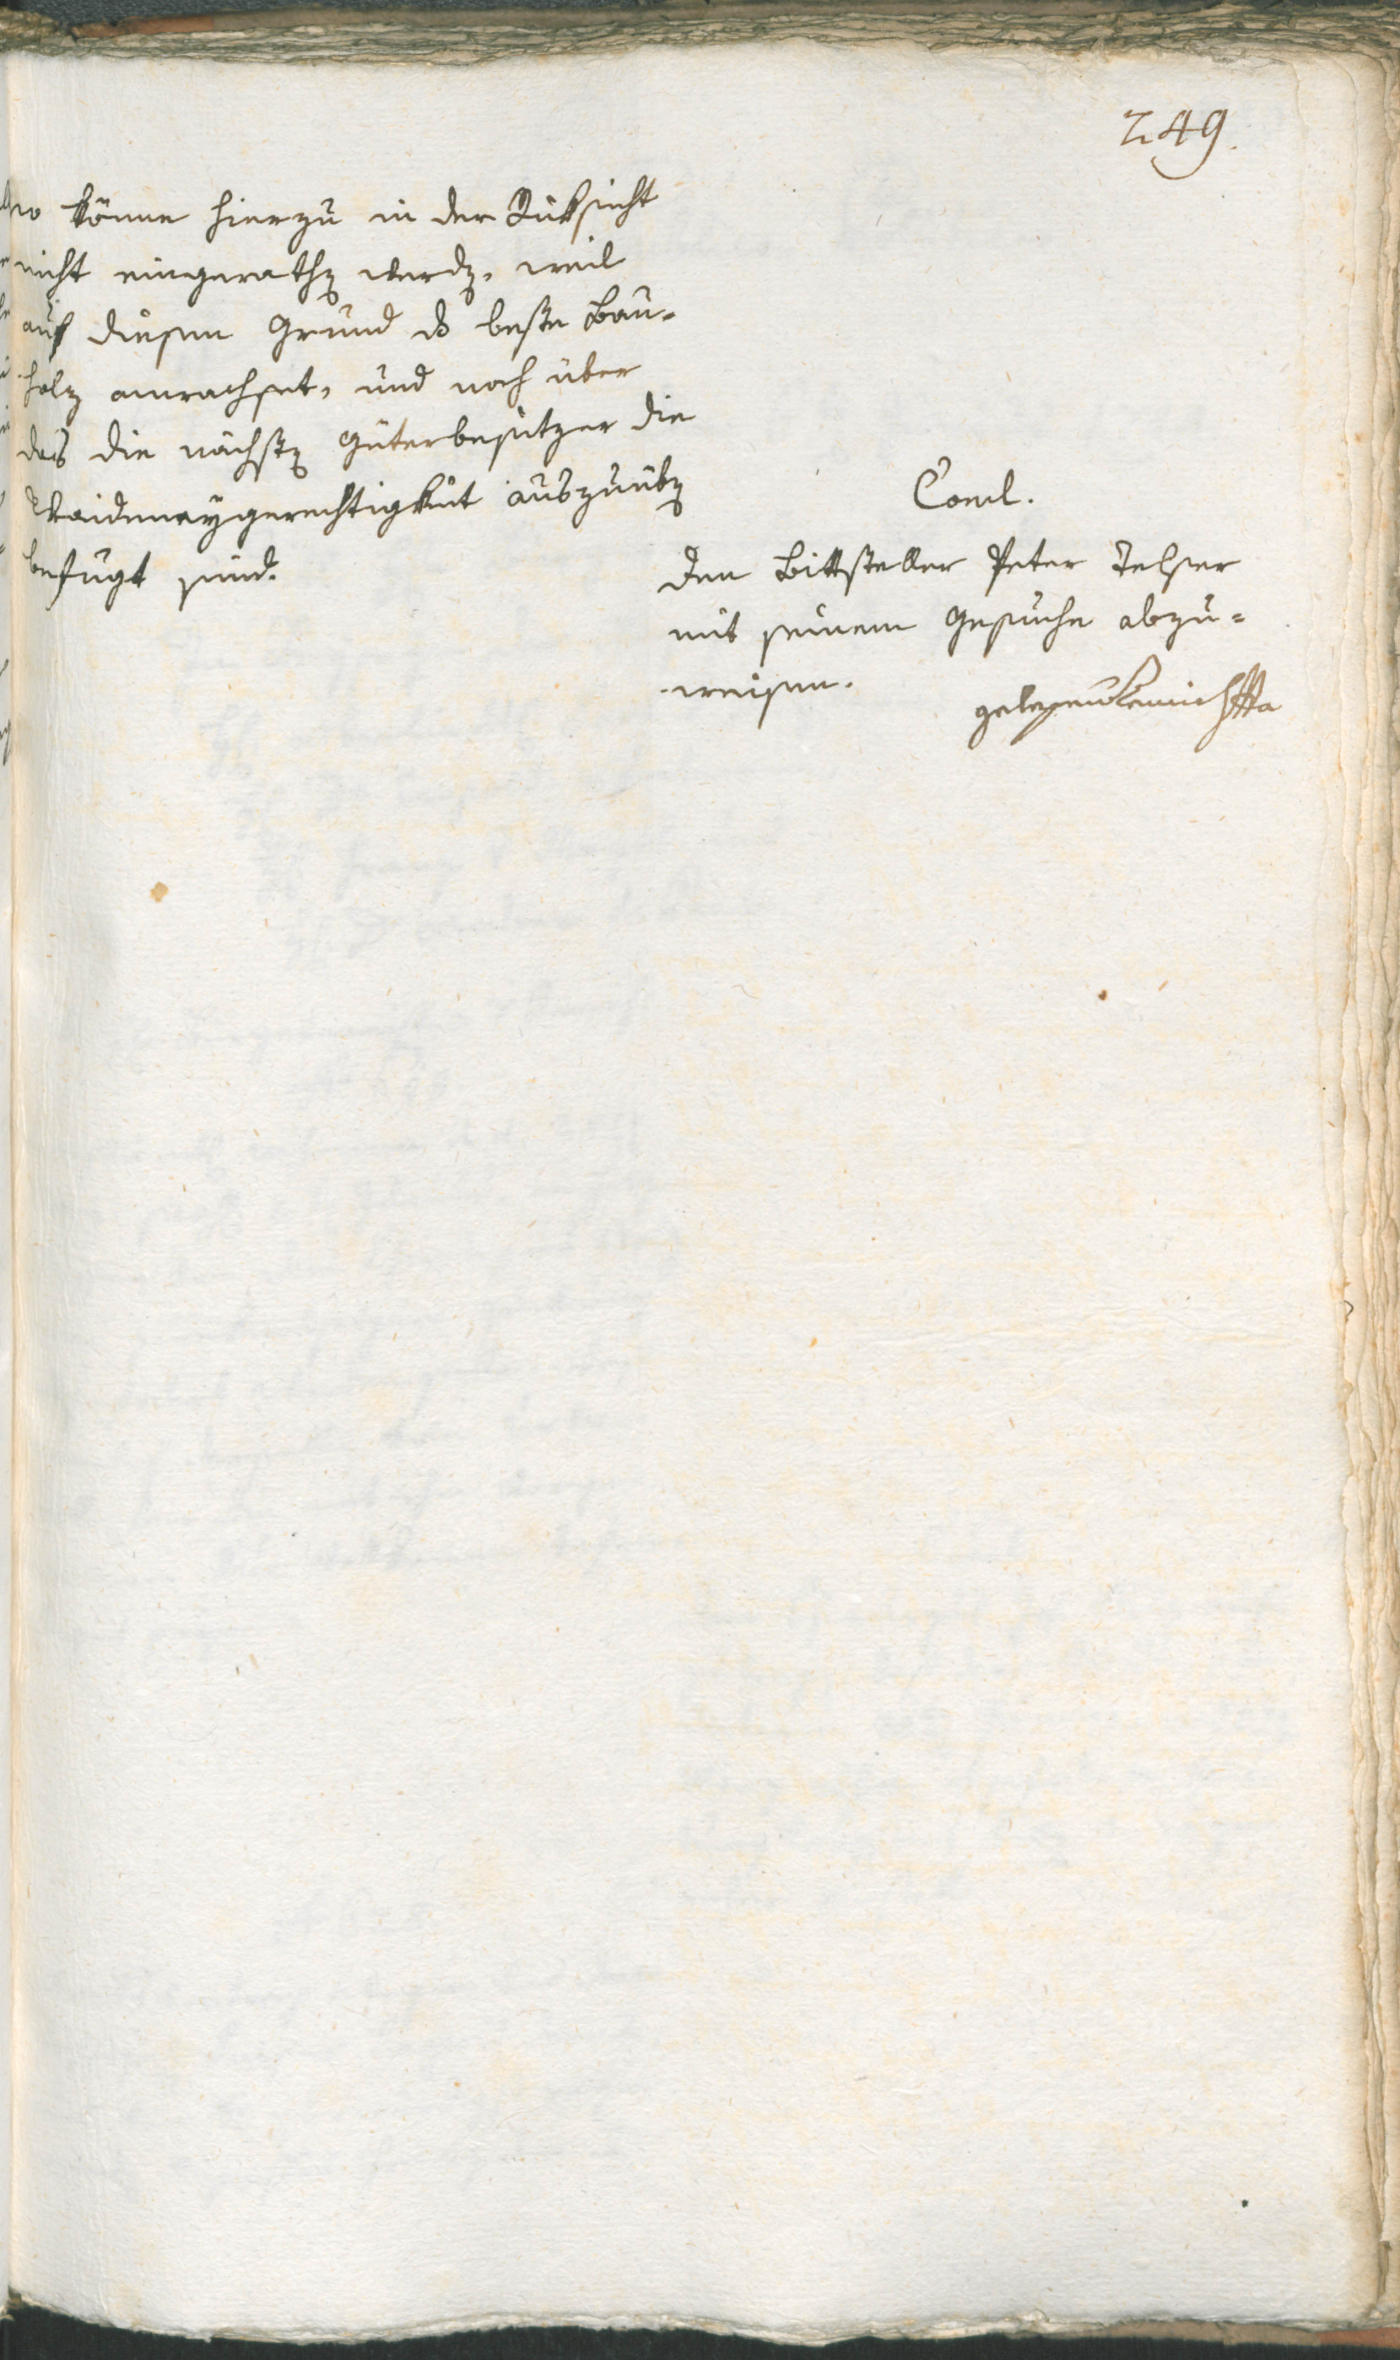 249.
so könne hierzu in der Rüksicht
nicht eingerathen werden, weil
auf diesem Grund das beste Bau-
holz anwachset, und noch über
das die nächsten Güterbesitzer die
Waidnaygerechtigkeit auszuüben
befugt sind.
Concl.
Den Bittsteller Peter Telser
mit seinem Gesuche abzu=
weisen.
gelesen